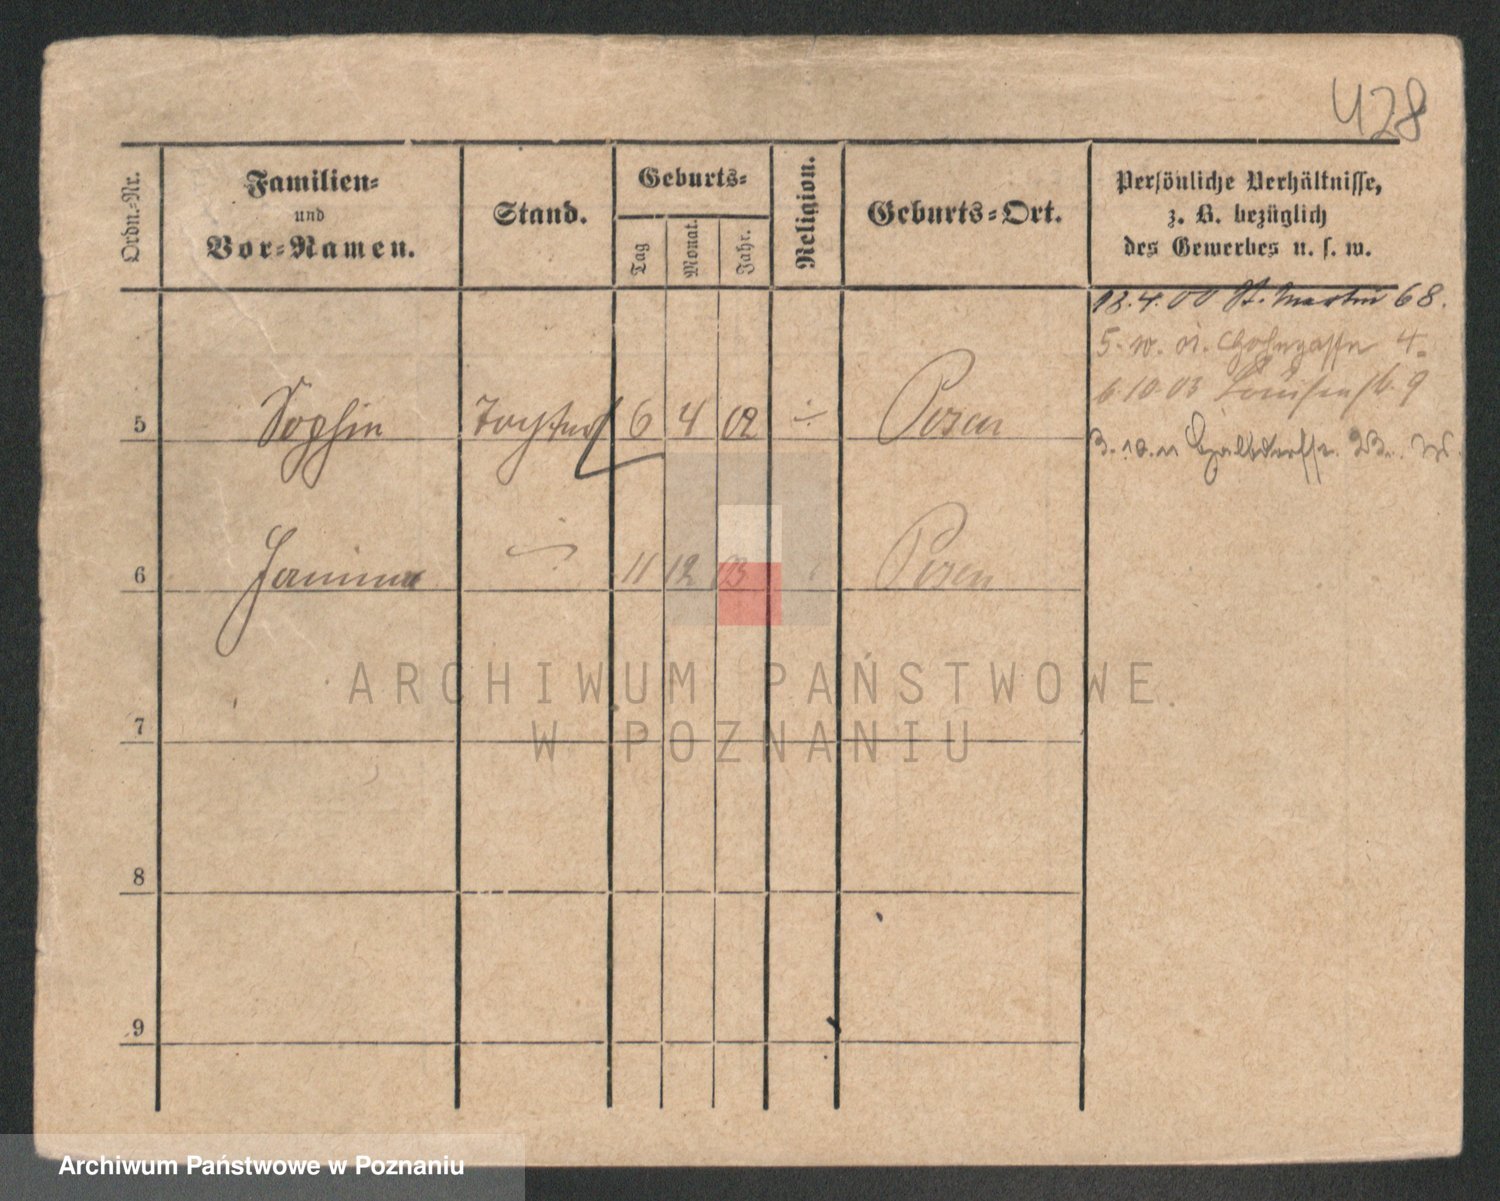 428
Ordn.-Nr.
Familien-
und
Vor-Namen.
Stand.
Geburts-
Tag
Monat.
Jahr.
Religion.
Geburts-Ort.
Persönliche Verhältnisse,
z. B. bezüglich
des Gewerbes u. s. w.
13.4.00 St. Martin 68.
4.
6.10.03 Louisenstr. 9
5 Sophie Tochter 6 4 02 Posen
6 Janina 11 12 03 Posen
7
8
9
ARCHIWUM PAŃSTWOWE
W POZNANIU
Archiwum Państwowe w Poznaniu